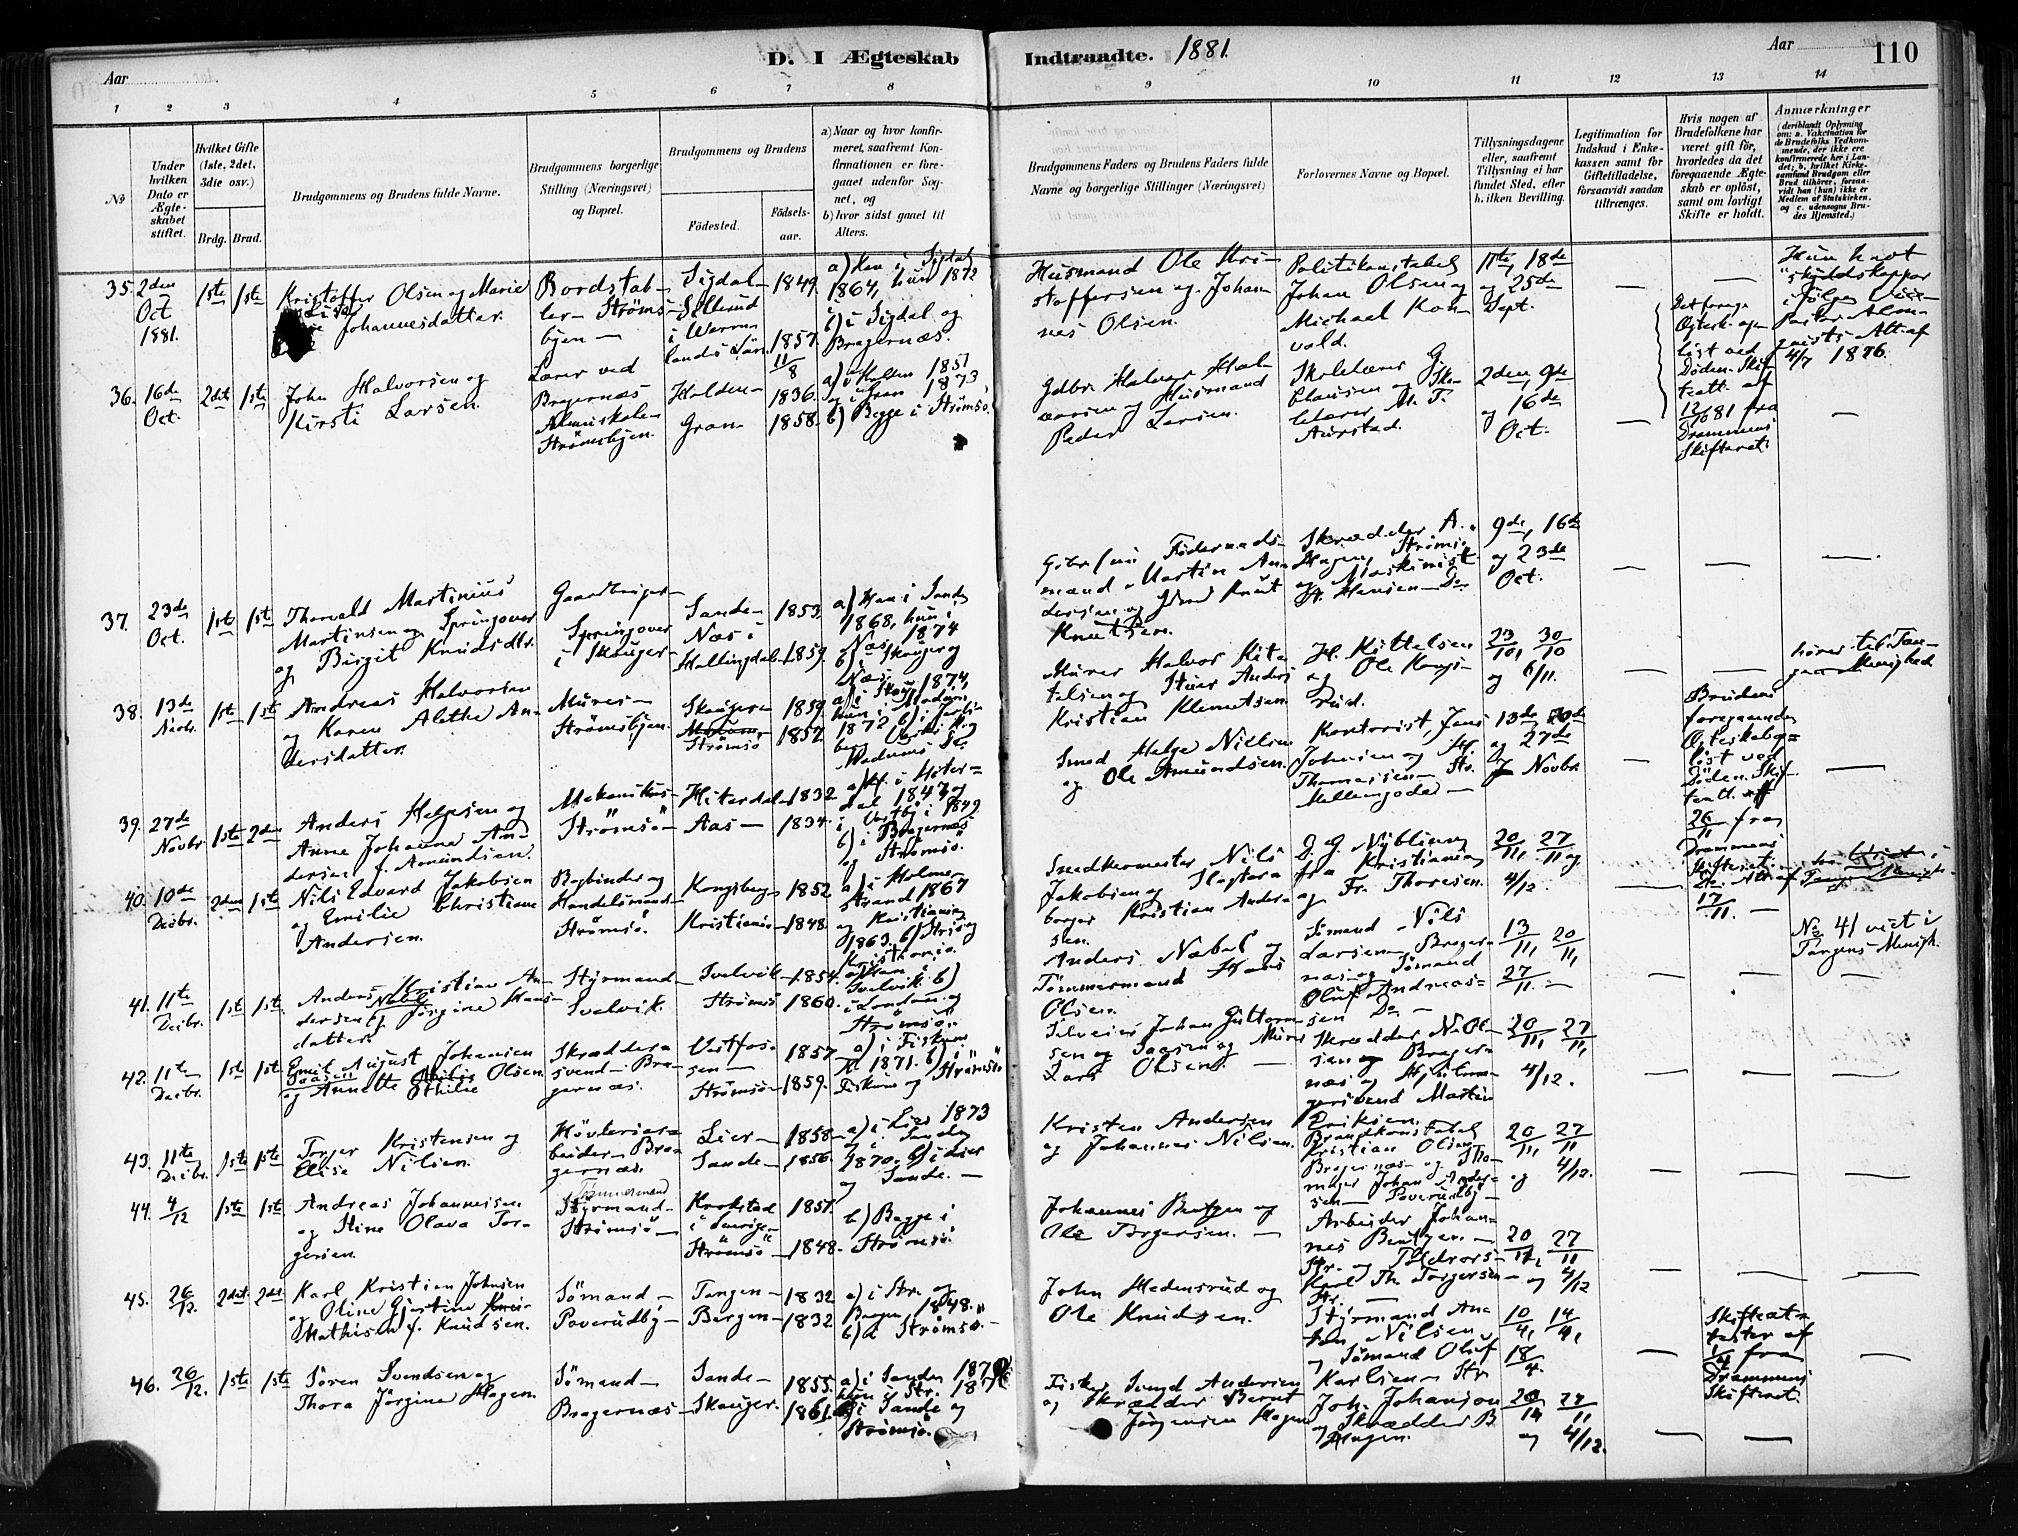 D. I Ægteskab Indtraadte. 1881.
Aar
Aar
110
1 2 3 4 5 6 7 8 9 10 11 12 13 14
No
Under hvilken Dato er Ægteskabet stiftet.
Hvilket Gifte (1ste, 2det, 3die osv.)
Brdg. Brud.
Brudgommens og Brudens fulde Navne.
Brudgommens borgerlige Stilling (Næringsvei) og Bopæl.
Brudgommens og Brudens
Fødested.
Fødselsaar.
a) Naar og hvor konfirmeret, saafremt Konfirmationen er foregaaet udenfor Sognet, og
b) hvor sidst gaaet til Alters.
Brudgommens Faders og Brudens Faders fulde Navne og borgerlige Stillinger (Næringsvei)
Forlovernes Navne og Bopæl.
Tillysningsdagene eller, saafremt Tillysning ei har fundet Sted, efter hvilken Bevilling.
Legitimation for Indskud i Enkekassen samt for Giftetilladelse, forsaavidt saadan tiltrænges.
Hvis nogen af Brudefolkene har været gift før, hvorledes da det foregaaende Ægteskab er opløst, samt om lovligt Skifte er holdt.
Anmærkninger
35. 2den Oct 1881. 1ste 1ste
Kristoffer Olsen og Marie
Johannesdatter.
Bordstabler Strømsbyen
Sigdal 1849.
i Wermlands Län 1857 11/8
a) Han i Sigdal 1864, hun 1872
b) i Sigdal og Bragernæs.
Husmand Ole Kristoffersen og Johannes Olsen.
Politikonstabel Johan Olsen og Michael
11te, 18de og 25de Sept.
—
—
Hun havt
4/7 1876.
36. 16de Oct. 2det 1ste
John Halvorsen og
Kirsti Larsen.
Lærer ved Bragernæs Almueskole Strømsbyen.
Holden 1836.
Gran 1858.
1851 og i Gran 1873
b) Begge i Strømsø.
Gdbr. Halvor Halvorsen og Husmand Peder Larsen.
Skolelærer G. Clausen og Skolelærer M. T. Aurstad.
2den, 9de og 16de Oct.
—
Det forege. Ægtesk. opløst ved Døden. Skifteatt. af 12/10 81 fra Drammens Skifteret.
—
37. 23de Oct. 1ste 1ste
Thorvald Martinius
Martinsen Springover
og Birgit Knudsdtr.
Gaardbruger Springover i Skouger
Sande 1853
Næs i Hallingdal 1859.
a) Han i Sande 1868, hun i Næs 1874
b) Skouger og Næs.
Martin Andersen og Knut Knutsen.
Skrædder A. Hagen, Strømsø og Maskinist H. Hansen Do
9de, 16de og 23de Oct.
—
—
—
38. 13de Novbr. 1ste 1ste
Andreas Halvorsen
og Karen Alethe Andersdatter.
Murer Strømsbyen.
Skouger 1859
Strømsø 1852
Murer Halvor Kittelsen og Anders Kristian Klemetsen
H. Kittelsen og Ole Kongsrud.
23/10, 30/10 og 6/11.
—
—
hører til Tangens Menighed
39. 27de Novbr. 1ste 2den
Anders Helgesen og
Anne Johanne Andersen f. Amundsen.
Mekanikus Strømsø
Hiterdal 1832
Aas 1834.
a) H. i Hiterdal 1847 og i Vestby i 1849
b) i Bragernæs og Strømsø.
Smed Helge Nilsen og Ole Amundsen.
Kontorist Jens Johnsen og H. Thomassen Str. Møllengodet
13de, 20de og 27de Novbr.
—
Brudens foregaaende Ægteskab opløst ved Døden. Skifteatt. af 26/11 fra Drammens Skifteret.
—
40. 10de Decbr. 2den 1ste
Nils Edvard Jakobsen
og Emilie Christiane
Andersen.
Bogbinder og Handelsmand Strømsø.
Kongsberg 1852
Kristiania 1848
a) i Holmestrand 1867 og Kristiania 1863. b) Strømsø og Kristiania.
Snedkermester Nils Jakobsen og Kristian Andersen.
fra Kristiania og Fr. Thoresen.
20/11, 27/11 og 4/12.
—
17/11.
41. 11te Decbr. 1ste 1ste
Anders Kristian Andersen Nabel
og Jørgine Hansdatter.
Styrmand Svelvik.
Svelvik 1854.
Strømsø 1860.
a) Han i Svelvik. b) i London og Strømsø.
Anders Nabel og Tømmermand Hans Olsen.
Sømand Nils Larsen Bragernæs og Sømand Oluf Andreassen Do
13/11, 20/11, 27/11.
—
—
No 41 viet i Tangens Menigh.
42. 11te Decbr. 1ste 1ste
Emil August Johansen
Saasen
og Annette Othilie Olsen
Skræddersvend Bragernæs.
Vestfossen 1857.
Strømsø 1859.
a) i Fiskum K. 1871. b) i Fiskum og Strømsø
Johan Guttormsen Saasen og Murer Lars Olsen.
Skrædder N. Olsen Bragernæs og Martin Eriksen.
20/11, 27/11, 4/12.
—
—
—
43. 11te Decbr. 1ste 1ste
Torger Kristensen og
Elise Nilsen.
Høvleriarbeider Bragernæs.
Lier 1858
Sande 1856.
a) i Lier 1873 og i Sande 1870. b) i Lier og Sande.
Kristen Andersen og Johannes Nilsen.
Brandkonstabel Kristian Olsen Bragernæs og Johan Andersen Poverudby
20/11, 27/11 og 4/12.
—
—
—
44. 4/12 1ste 1ste
Andreas Johannesen
og Stine Olava Torgersen.
Tømmermand
Styrmand Strømsø
Krokstad i Sverige 1857.
Strømsø 1848.
b) Begge i Strømsø.
Johannes Bengtsen og Ole Torgersen.
Arbeider Johannes Bengtsen Str. og Karl Th. Torgersen Str.
20/11, 27/11 og 4/12
—
—
—
45. 26/12. 2det 2det
Karl Kristian Johnsen
og Oline Gjertine
Mathisen f. Knudsen.
Sømand Poverudby
Tangen 1832
Bergen 1832
a) i Str. og Bergen 1848. b) i Strømsø.
John Hedensrud og Ole Knudsen.
Styrmand Anton Nilsen og Sømand Oluf Karlsen Str.
10/4, 14/4, 18/4.
—
Skifteatester af 1/4 fra Drammens Skifteret.
—
46. 26/12. 1ste 1ste
Søren Svendsen og
Thora Jørgine Hagen.
Sømand Bragernæs
Sande 1855.
Skouger. 1861
a) i Sande hun i Str. b) i Sande og Strømsø.
Fisker Svend Andersen og Skrædder Bernt Jørgensen Hagen
Joh. Johansen og Skrædder B. Hagen.
20/11 27/11 og 4/12.
—
—
—